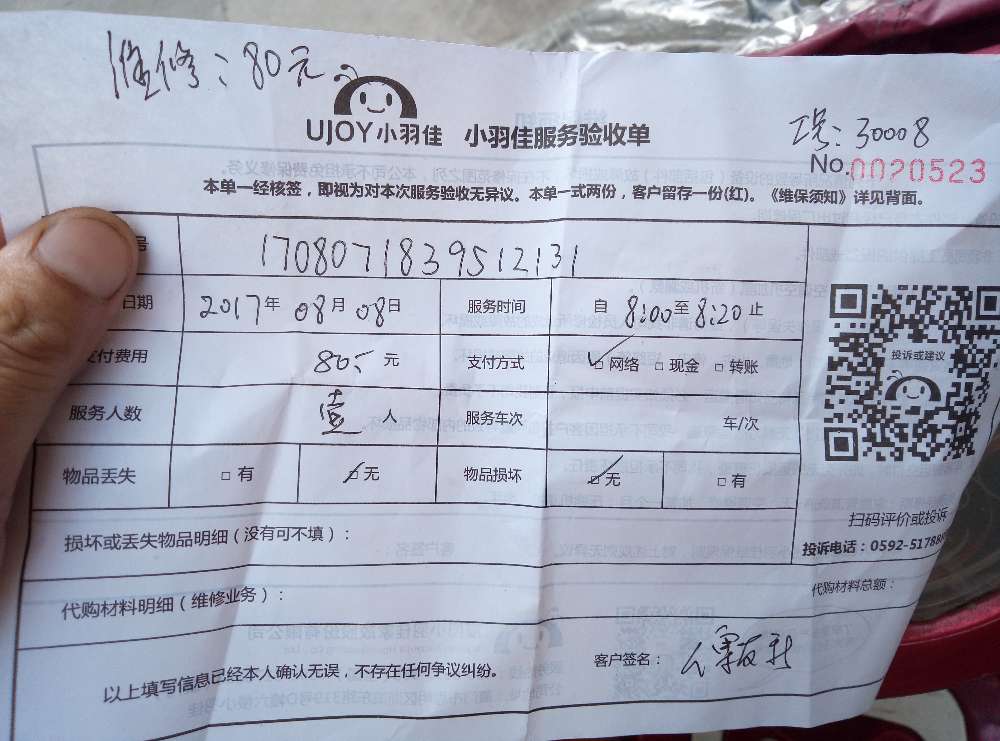 维修：80元
UJOY小羽佳 小羽佳服务验收单
工号：30008
No.0020523
本单一经核签，即视为对本次服务验收无异议。本单一式两份，客户留存一份(红)。《维保须知》详见背面。
号 1708071839512131
日期 2017年 08月 08日 服务时间 自 8:00至8:20止
支付费用 80.- 元 支付方式 ☑网络 □现金 □转账
服务人数 壹 人 服务车次 车/次
物品丢失 □有 ☑无 物品损坏 ☑无 □有
投诉或建议
扫码评价或投诉
投诉电话：0592-51788
损坏或丢失物品明细（没有可不填）：
代购材料明细（维修业务）：
代购材料总额：
以上填写信息已经本人确认无误，不存在任何争议纠纷。
客户签名：